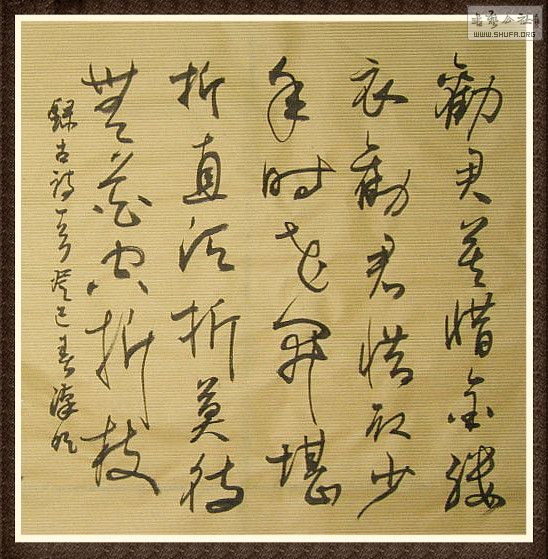 勸君莫惜金縷
衣勸君惜取少
年時花開堪
折直須折莫待
無花空折枝
錄古詩一首癸巳春
書藝公社
WWW.SHUFA.ORG